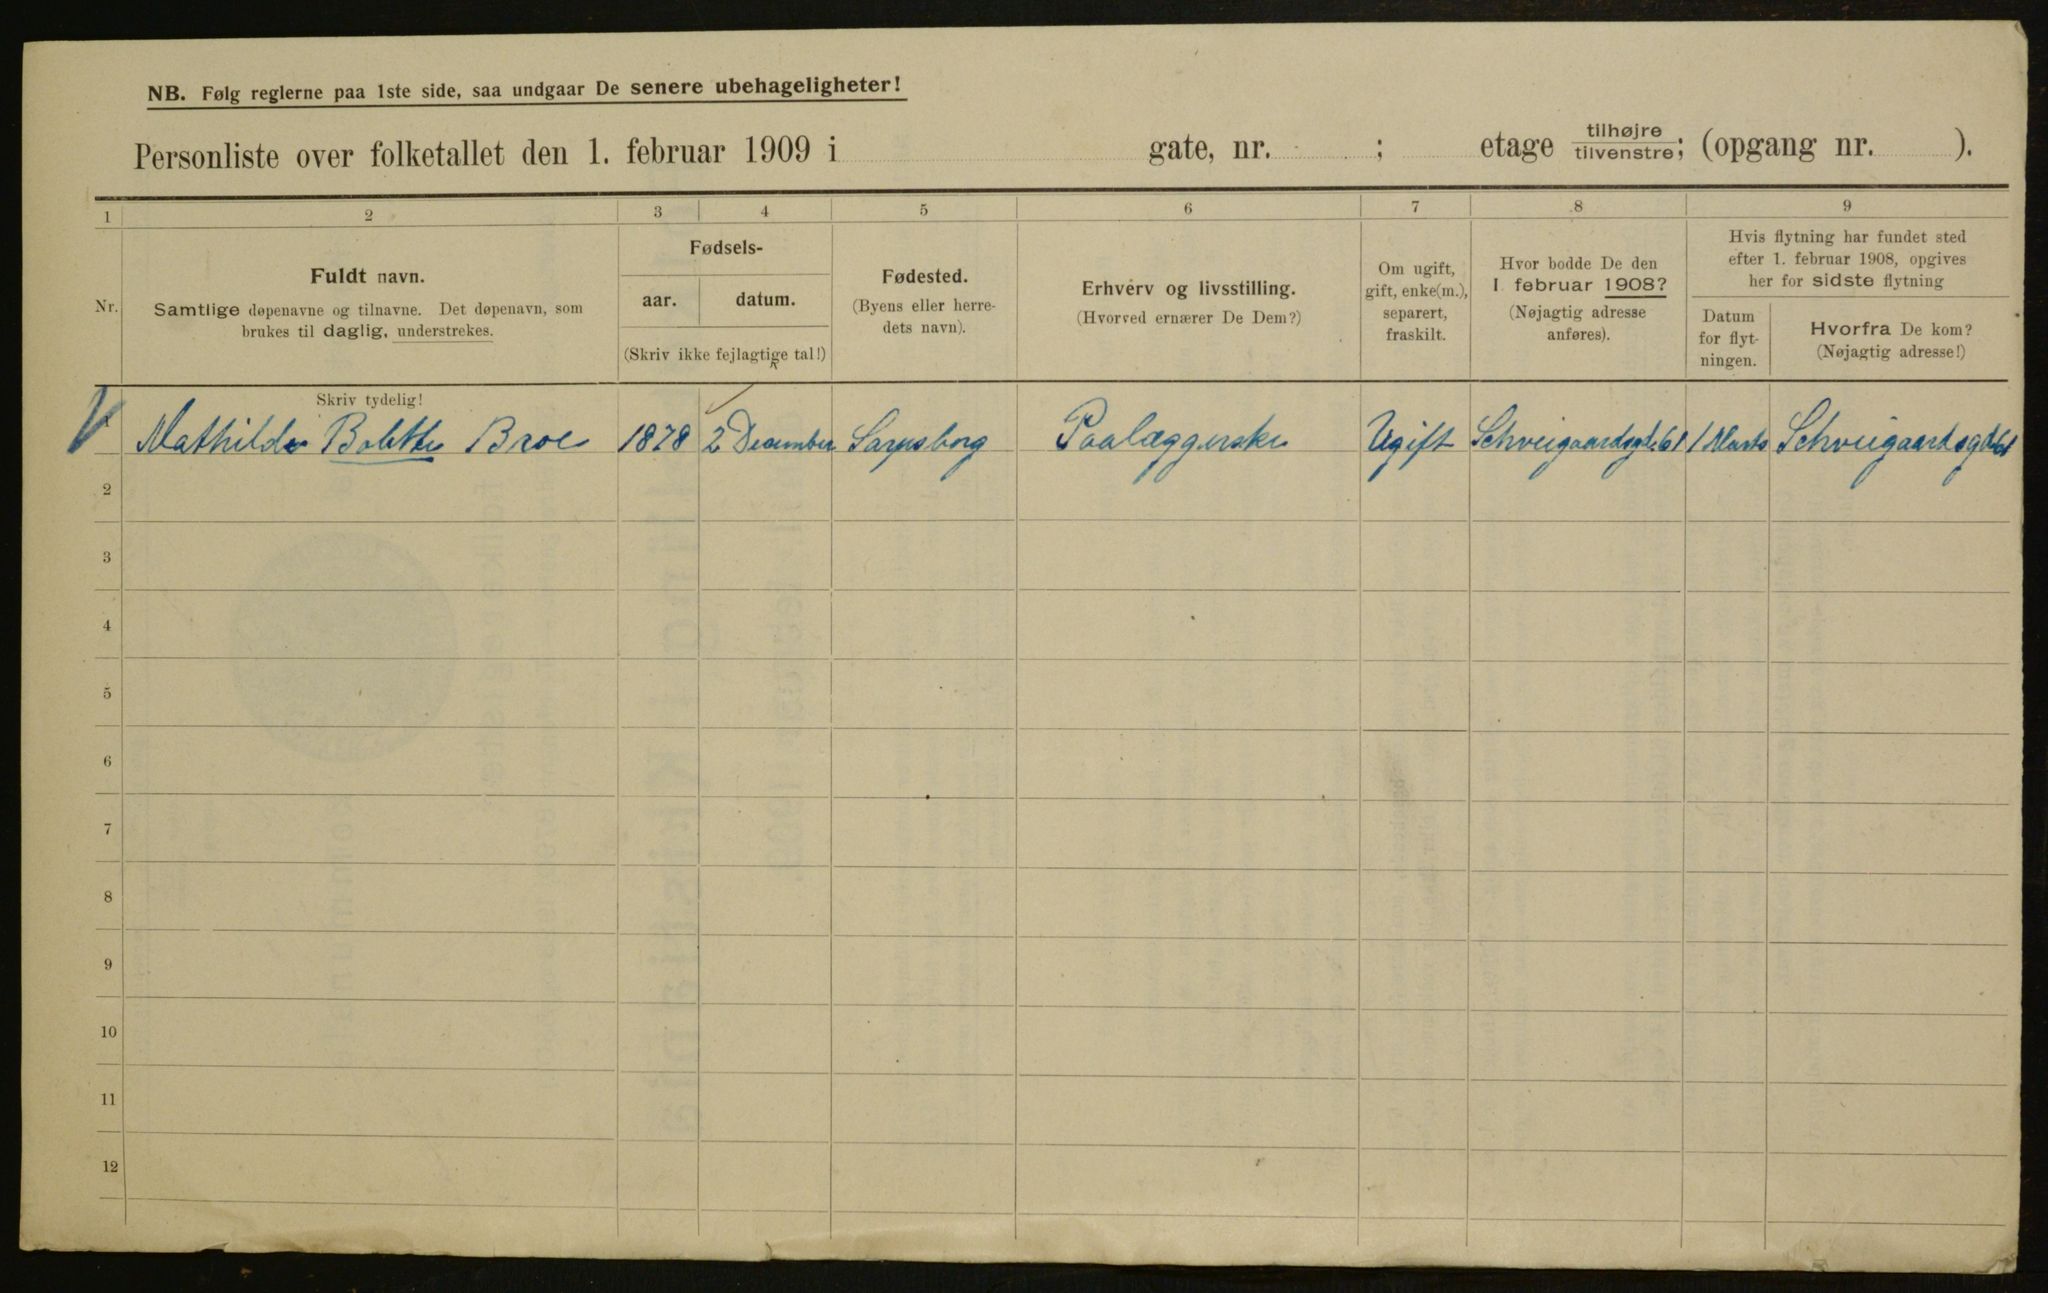 NB. Følg reglerne paa 1ste side, saa undgaar De senere ubehageligheter!
Personliste over folketallet den 1. februar 1909 i gate, nr. ; etage tilhøjre/tilvenstre; (opgang nr. ).
1 2 3 4 5 6 7 8 9
Nr.
Fuldt navn.
Samtlige døpenavne og tilnavne. Det døpenavn, som
brukes til daglig, understrekes.
Fødsels-
aar. datum.
(Skriv ikke fejlagtige tal!)
Fødested.
(Byens eller herre-
dets navn).
Erhverv og livsstilling.
(Hvorved ernærer De Dem?)
Om ugift,
gift, enke(m.),
separert,
fraskilt.
Hvor bodde De den
1. februar 1908?
(Nøjagtig adresse
anføres).
Hvis flytning har fundet sted
efter 1. februar 1908, opgives
her for sidste flytning
Datum
for flyt-
ningen.
Hvorfra De kom?
(Nøjagtig adresse!)
Skriv tydelig!
Mathilde Bolette Broe 1878 2 December Sarpsborg Paalæggerske Ugift Schveigaardsgd.61 1 Marts Schveigaardsgd61
2
3
4
5
6
7
8
9
10
11
12